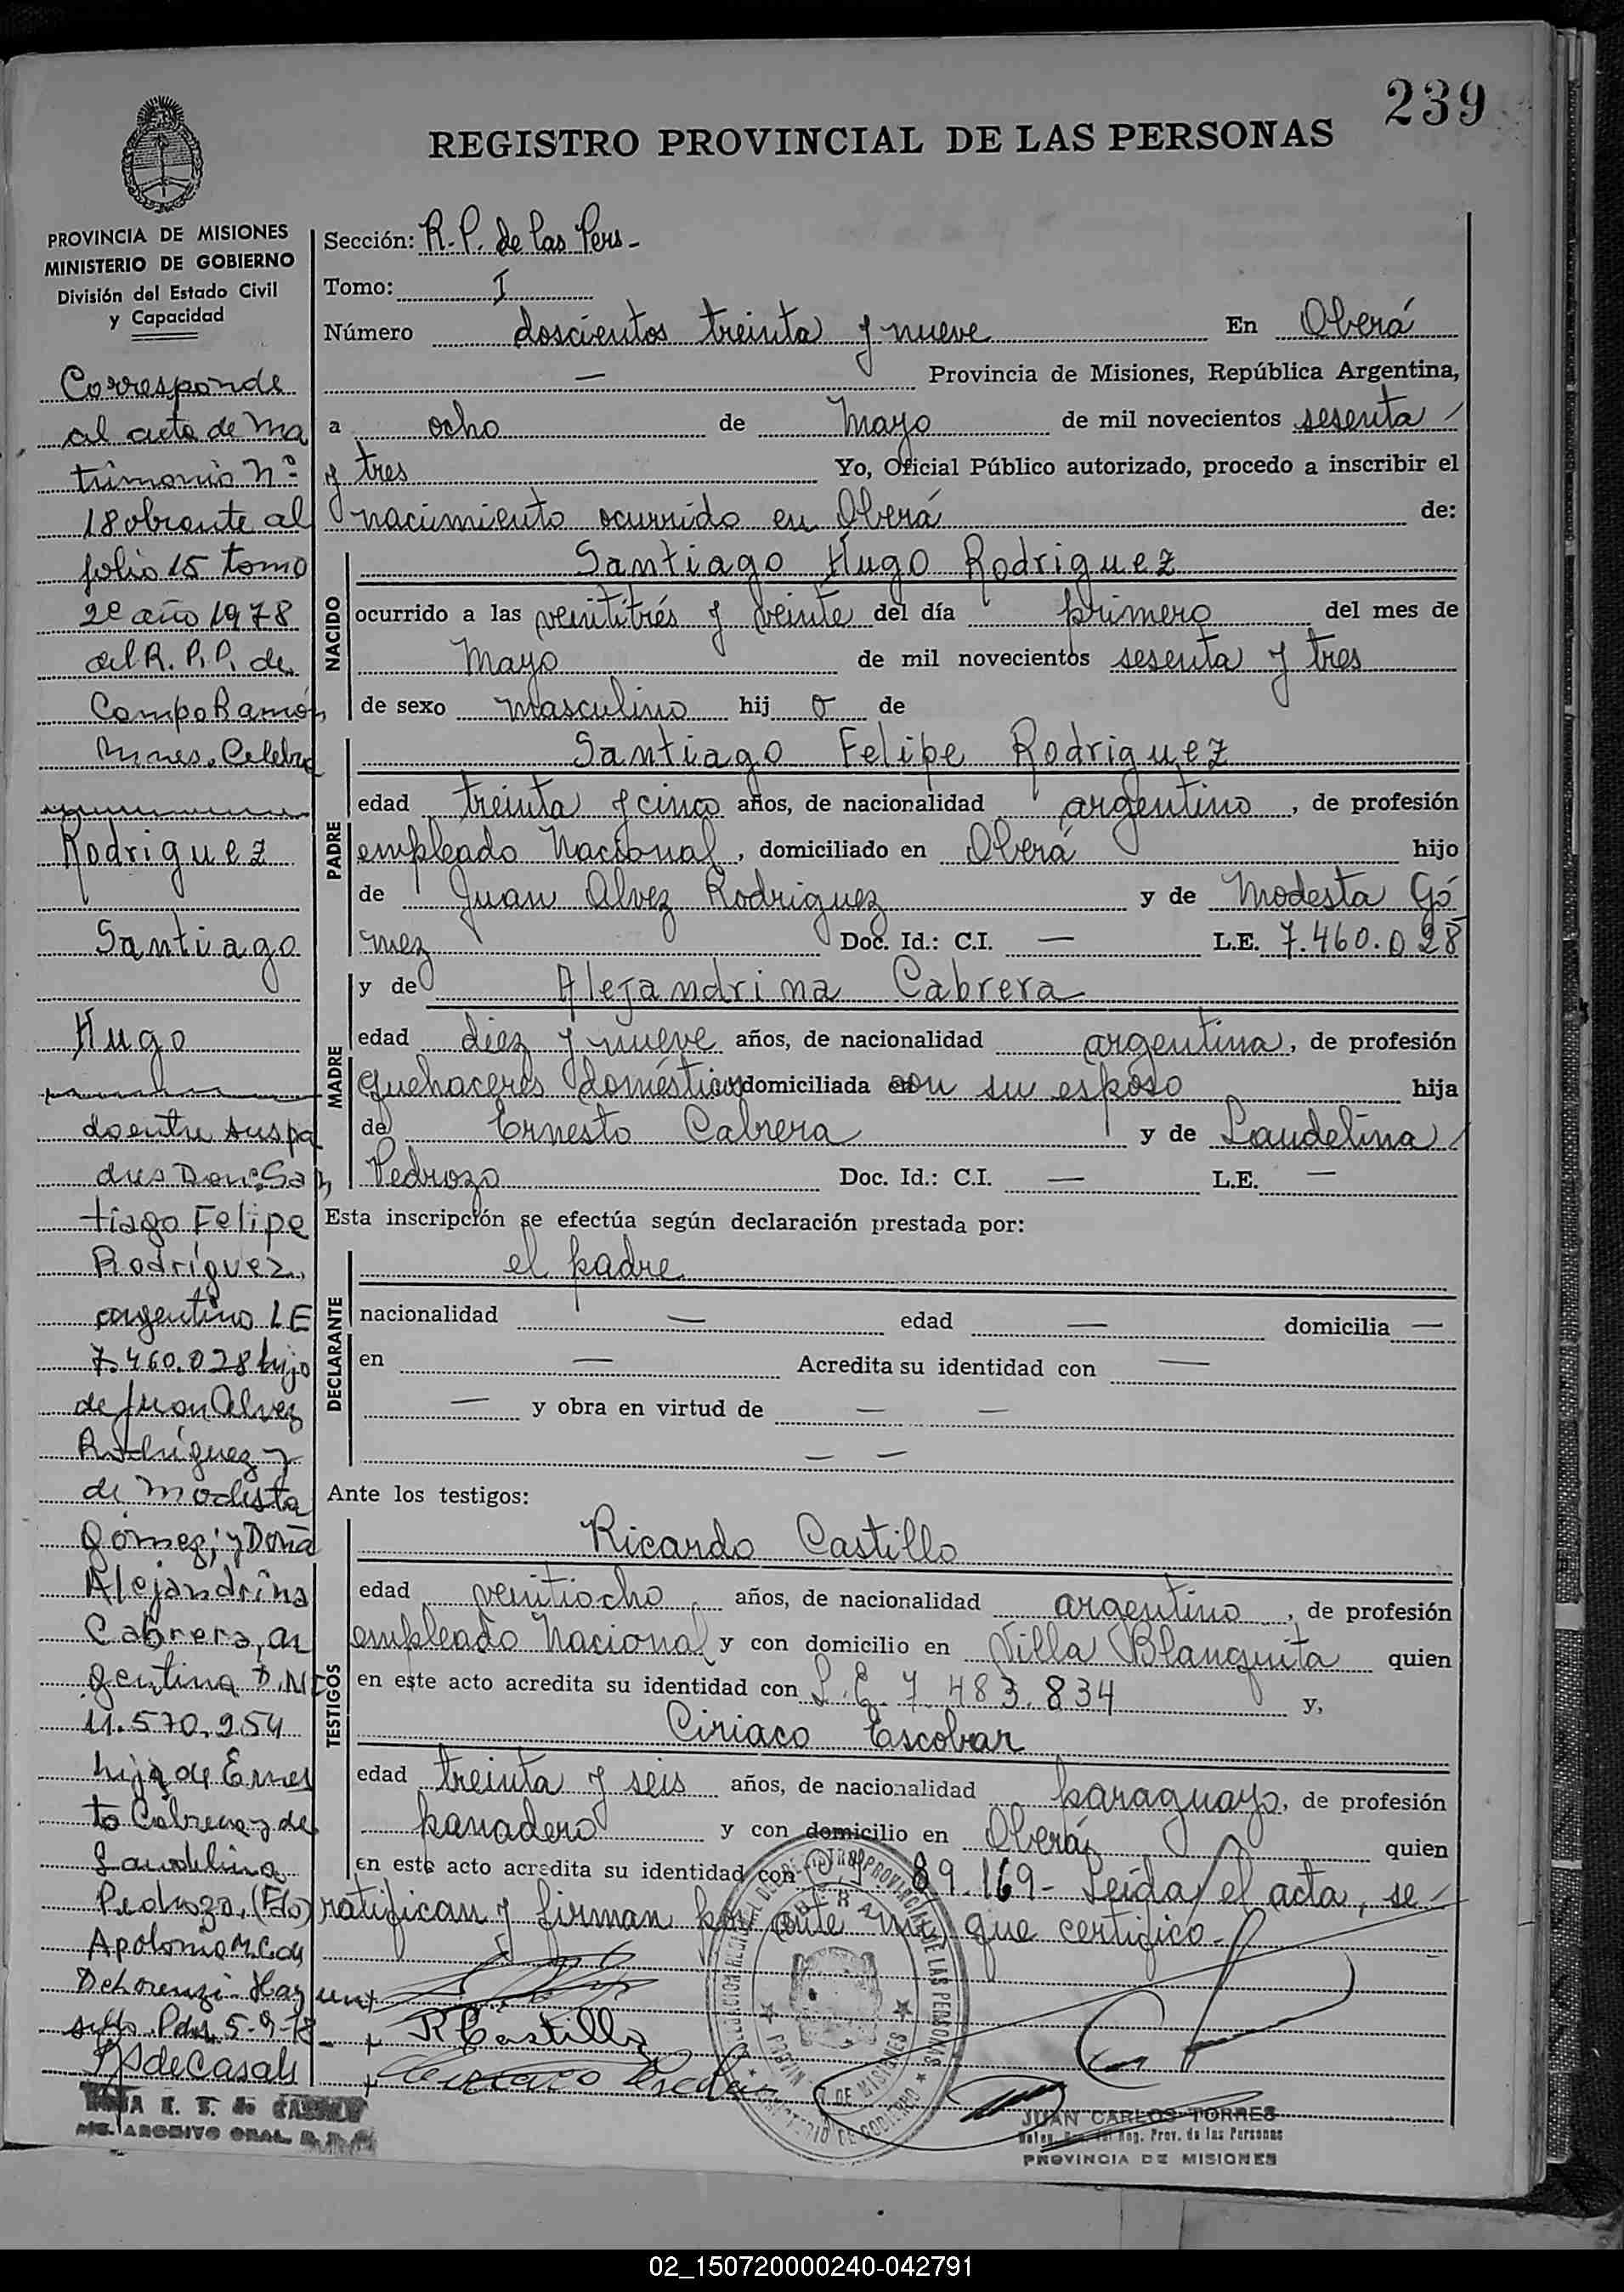 239
REGISTRO PROVINCIAL DE LAS PERSONAS
PROVINCIA DE MISIONES
MINISTERIO DE GOBIERNO
División del Estado Civil
y Capacidad
Corresponde
al acta de Ma
trimonio Nº
18 obrante al
folio 15 tomo
2º año 1978
del R.P.P. de
Campo Ramón
Mnes. Celebra
Rodriguez
Santiago
Hugo
do entre sus pa
dres Don: San
tiago Felipe
Rodríguez,
argentino LE
7.460.028 hijo
de Juan Alvez
Rodríguez y
de Modesta
Gómez; y Doña
Alejandrina
Cabrera, ar
gentina D.N.I
11.570.954
hija de Ernes
to Cabrera y de
Laudelina
Pedrozo, (Fdo)
Apolonia M.C. de
De Lorenzi. Hay un
sello. Pdas, 5-9-78
Sección: R.P. de las Pers-
Tomo: I
Número doscientos treinta y nueve En Oberá
— Provincia de Misiones, República Argentina,
a ocho de Mayo de mil novecientos sesenta
y tres Yo, Oficial Público autorizado, procedo a inscribir el
nacimiento ocurrido en Oberá de:
NACIDO
Santiago Hugo Rodriguez
ocurrido a las veintitrés y veinte del día primero del mes de
Mayo de mil novecientos sesenta y tres
de sexo masculino hij o de
PADRE
Santiago Felipe Rodriguez
edad treinta y cinco años, de nacionalidad argentino, de profesión
empleado Nacional, domiciliado en Oberá hijo
de Juan Alvez Rodriguez y de Modesta Gó
mez Doc. Id.: C.I. — L.E. 7.460.028
MADRE
y de Alejandrina Cabrera
edad diez y nueve años, de nacionalidad argentina, de profesión
quehaceres domésticos domiciliada con su esposo hija
de Ernesto Cabrera y de Laudelina
Pedrozo Doc. Id.: C.I. — L.E. —
Esta inscripción se efectúa según declaración prestada por:
DECLARANTE
el padre
nacionalidad — edad — domicilia —
en — Acredita su identidad con —
— y obra en virtud de — —
— —
Ante los testigos:
TESTIGOS
Ricardo Castillo
edad veintiocho, años, de nacionalidad argentino, de profesión
empleado Nacional y con domicilio en Villa Blanquita quien
en este acto acredita su identidad con L.E. 7.483.834 y,
Ciriaco Escobar
edad treinta y seis años, de nacionalidad paraguayo, de profesión
panadero y con domicilio en Oberá quien
en este acto acredita su identidad con 89.169- Leída el acta, se
ratifican y firman por ante mi, que certifico-
R Castillo
JUAN CARLOS TORRES
Reg. Prov. de las Personas
PROVINCIA DE MISIONES
02_150720000240-042791